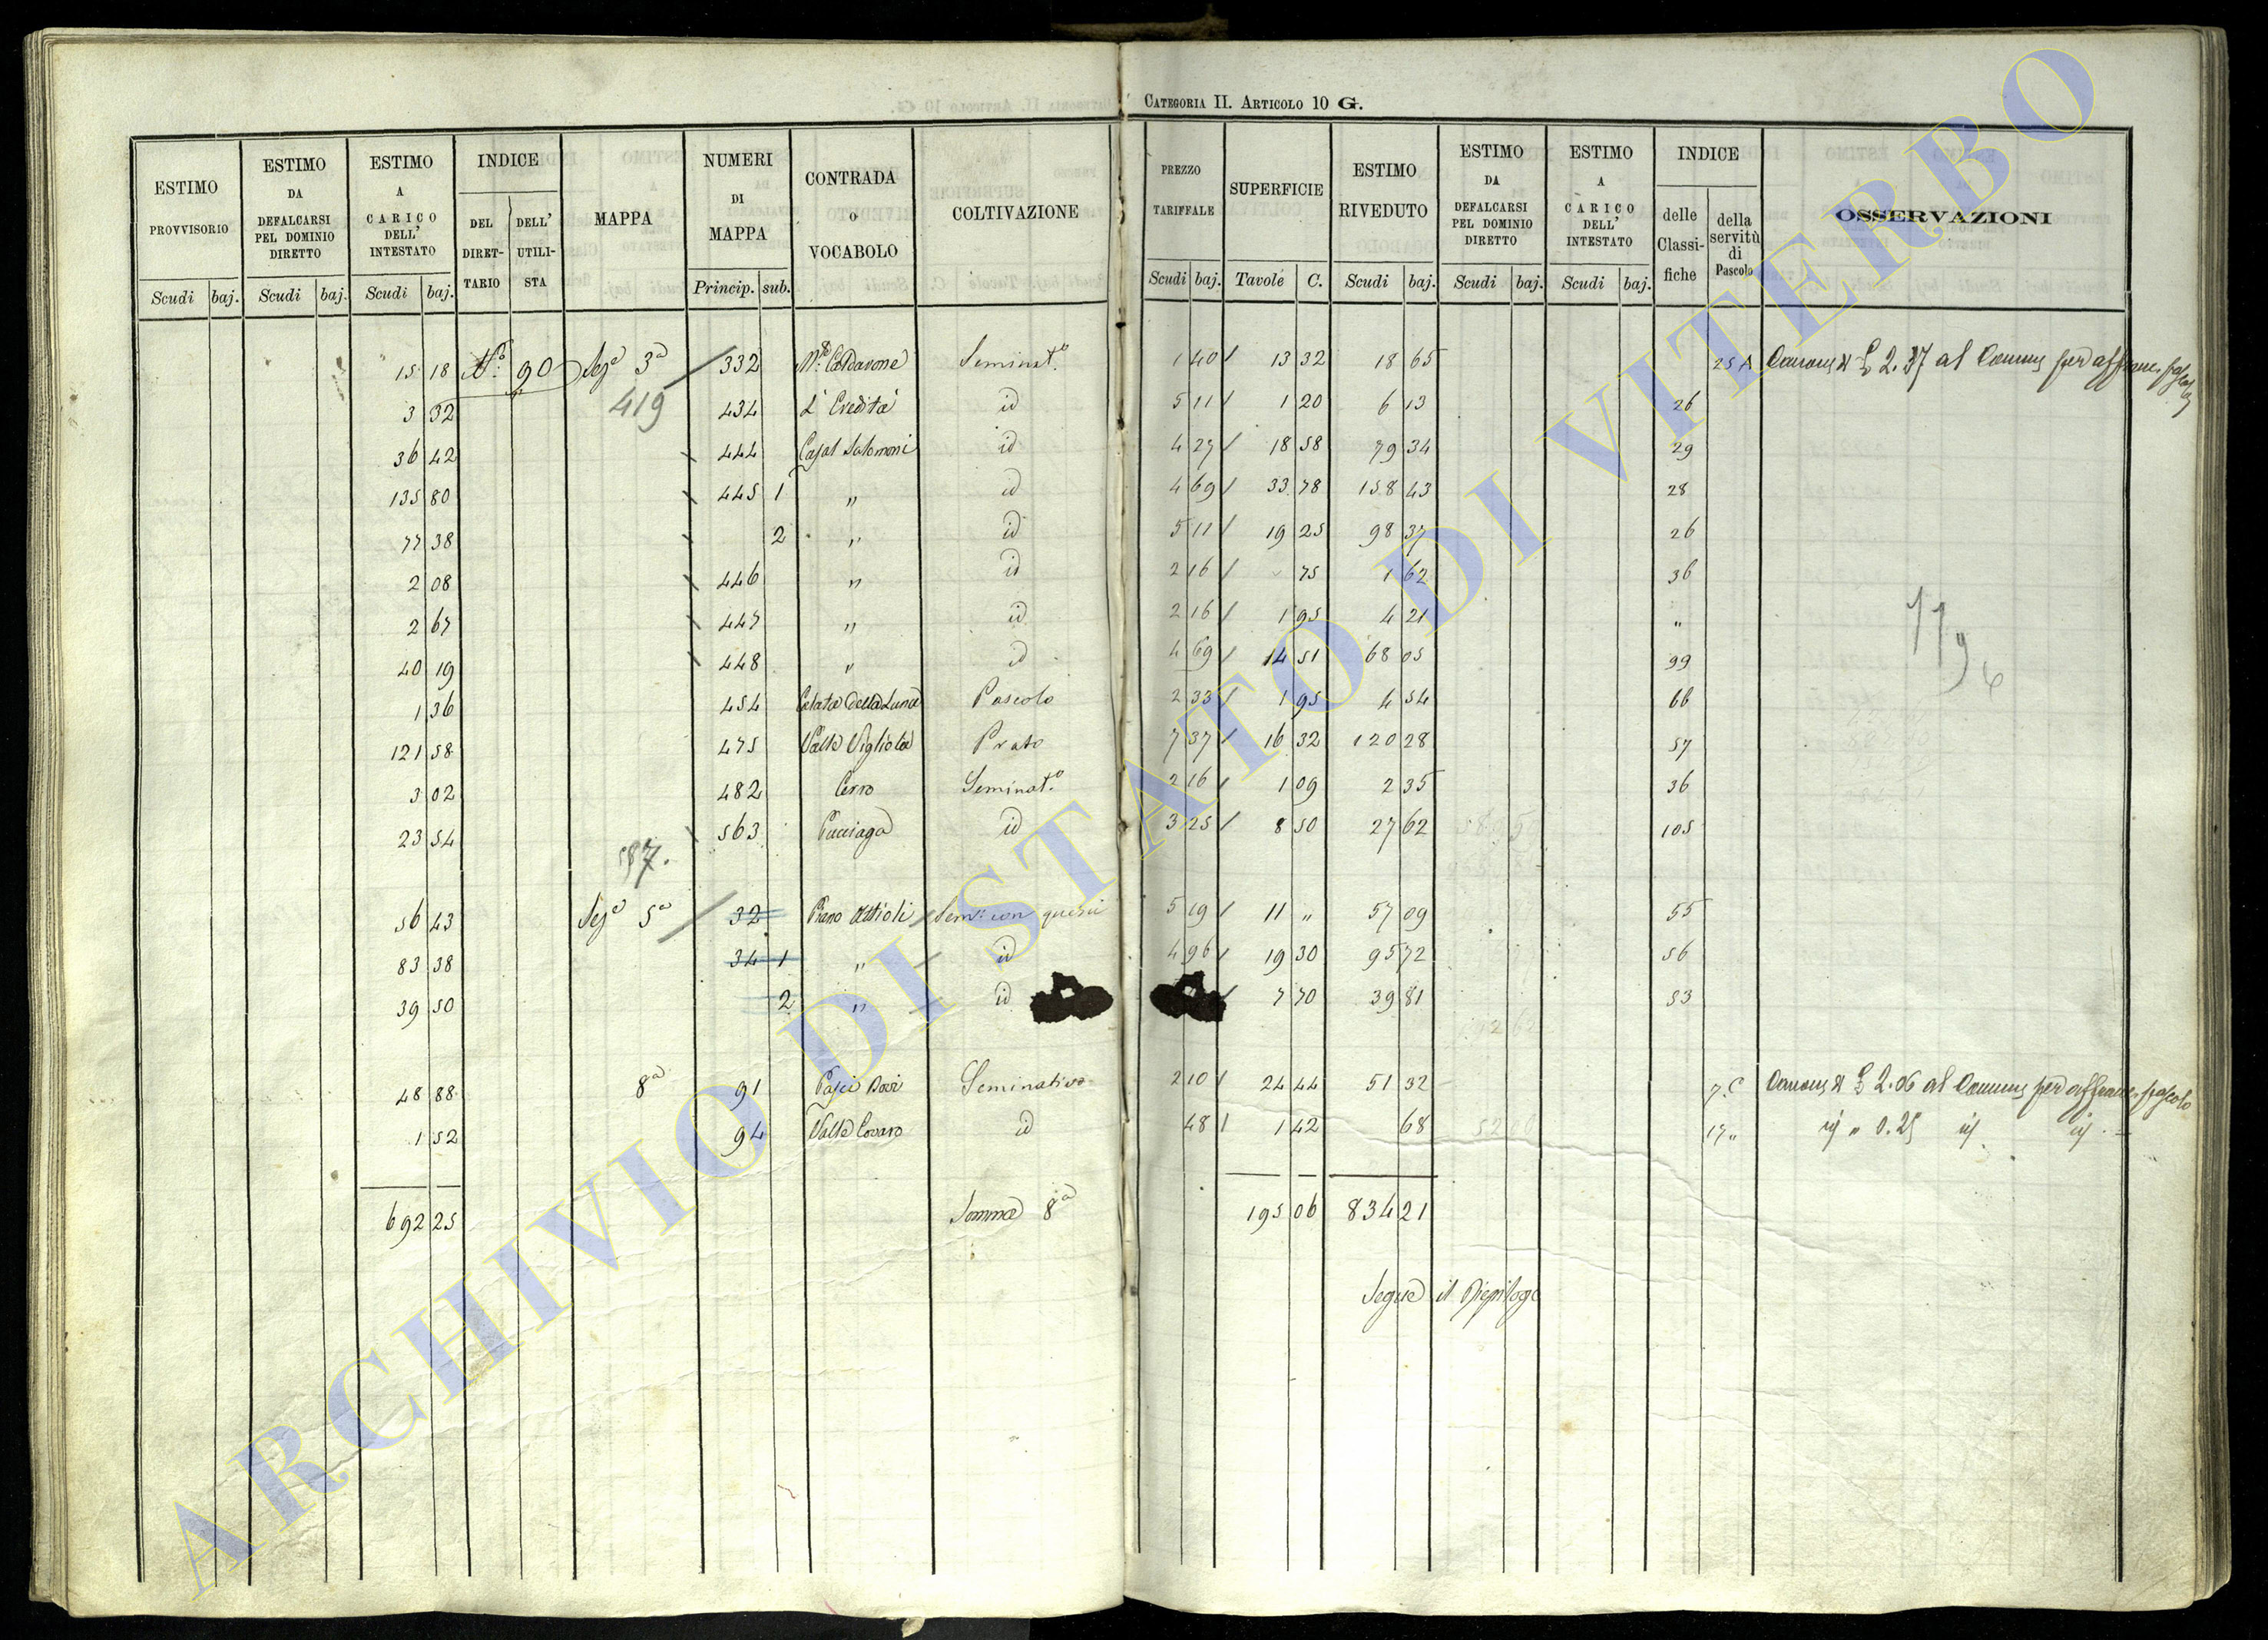 CATEGORIA II. ARTICOLO 10 G.
ESTIMO PROVVISORIO
ESTIMO DA DEFALCARSI PEL DOMINIO DIRETTO
ESTIMO A CARICO DELL' INTESTATO
INDICE
DEL DIRETTARIO
DELL' UTILISTA
MAPPA
NUMERI DI MAPPA
CONTRADA O VOCABOLO
COLTIVAZIONE
PREZZO TARIFFALE
SUPERFICIE
ESTIMO RIVEDUTO
ESTIMO DA DEFALCARSI PEL DOMINIO DIRETTO
ESTIMO A CARICO DELL' INTESTATO
INDICE
delle Classifiche
della servitù di Pascolo
OSSERVAZIONI
Scudi baj. Scudi baj. Scudi baj. Princip. sub. Scudi baj. Tavole C. Scudi baj. Scudi baj. Scudi baj.
15 18 90 Sez.a 3a 332 Seminat.o 1 40 13 32 18 65 25 A 2.37 al Comune per affranc.
3 32 419 434 L'Eredità id 5 11 1 20 6 13 26
36 42 444 Casal Salomoni id 4 27 18 58 79 34 29
135 80 445 1 " id 4 69 33 78 158 43 28
77 38 2 " id 5 11 19 25 98 37 26
2 08 446 " id 2 16 75 1 62 36
2 67 447 " id 2 16 1 95 4 21 "
40 19 448 " id 4 69 14 51 68 05 99
1 36 454 Calata della Luna Pascolo 2 33 1 95 4 54 66
121 58 475 Valle Vigliola Prato 7 37 16 32 120 28 57
3 02 482 Cerro Seminat.o 2 16 1 09 2 35 36
23 54 563 Cucciaga id 3 25 8 50 27 62 105
56 43 Sez.a 5a 32 Piano Sem. con querci 5 19 11 " 57 09 55
83 38 34 1 " id 4 96 19 30 95 72 56
39 50 2 " id 7 70 39 81 53
48 88 8a 91 Seminativo 2 10 24 44 51 32 7 C 2.06 al Comune per affranc. pascolo
1 52 94 Valle id 48 1 42 68 17 " id " 0.25 id id
692 25 Somma 8a 195 06 834 21
Segue il Riepilogo
ARCHIVIO DI STATO DI VITERBO